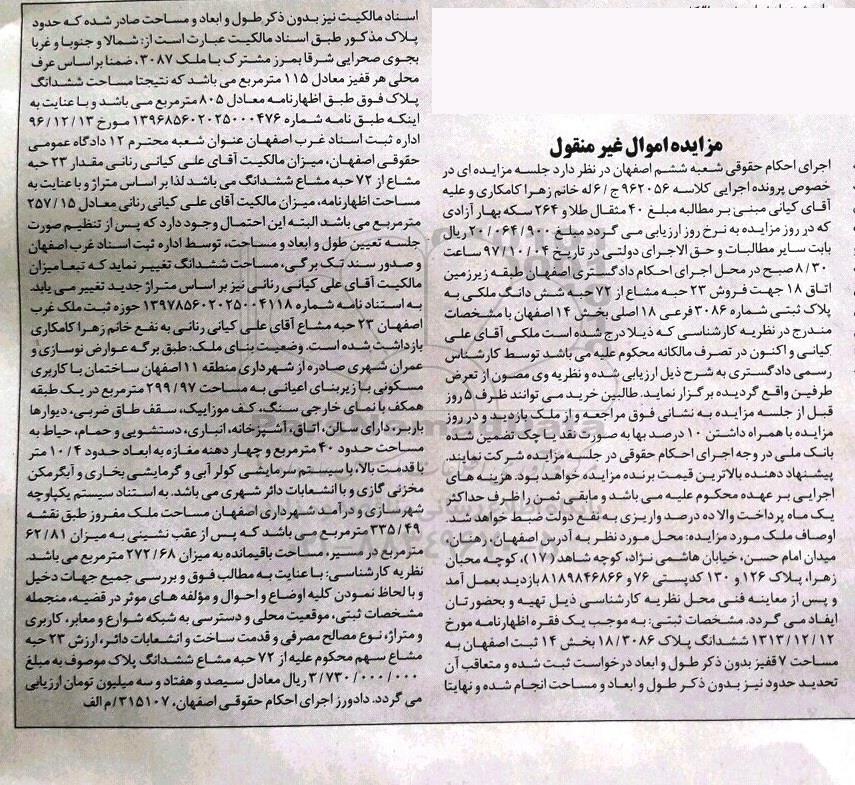 مزایده اموال غیر منقول
اجرای احکام حقوقی شعبه ششم اصفهان در نظر دارد جلسه مزایده ای در
خصوص پرونده اجرایی کلاسه ۹۶۲۰۵۶ ج/۶ له خانم زهرا کامکاری و علیه
آقای کیانی مبنی بر مطالبه مبلغ ۴۰ مثقال طلا و ۲۶۴ سکه بهار آزادی
که در روز مزایده به نرخ روز ارزیابی می گردد مبلغ ۲۰/۰۶۴/۹۰۰ ریال
بابت سایر مطالبات و حق الاجرای دولتی در تاریخ ۹۷/۱۰/۰۴ ساعت
۸/۳۰ صبح در محل اجرای احکام دادگستری اصفهان طبقه زیرزمین
اتاق ۱۸ جهت فروش ۲۳ حبه مشاع از ۷۲ حبه شش دانگ ملکی به
پلاک ثبتی شماره ۳۰۸۶ فرعی ۱۸ اصلی بخش ۱۴ اصفهان با مشخصات
مندرج در نظریه کارشناسی که ذیلا درج شده است ملکی آقای علی
کیانی و اکنون در تصرف مالکانه محکوم علیه می باشد توسط کارشناس
رسمی دادگستری به شرح ذیل ارزیابی شده و نظریه وی مصون از تعرض
طرفین واقع گردیده برگزار نماید. طالبین خرید می توانند ظرف ۵ روز
قبل از جلسه مزایده به نشانی فوق مراجعه و از ملک بازدید و در روز
مزایده با همراه داشتن ۱۰ درصد بها به صورت نقد یا چک تضمین شده
بانک ملی در وجه اجرای احکام حقوقی در جلسه مزایده شرکت نمایند.
پیشنهاد دهنده بالاترین قیمت برنده مزایده خواهد بود. هزینه های
اجرایی بر عهده محکوم علیه می باشد و مابقی ثمن را ظرف حداکثر
یک ماه پرداخت والا ده درصد واریزی به نفع دولت ضبط خواهد شد.
اوصاف ملک مورد مزایده: محل مورد نظر به آدرس اصفهان، رهنان،
میدان امام حسن، خیابان هاشمی نژاد، کوچه شاهد (۱۷)، کوچه محبان
زهرا، پلاک ۱۲۶ و ۱۳۰ کدپستی ۷۶ و ۸۱۸۹۸۴۶۸۶۶ بازدید بعمل آمد
و پس از معاینه فنی محل نظریه کارشناسی ذیل تهیه و بحضورتان
ایفاد می گردد. مشخصات ثبتی: به موجب یک فقره اظهارنامه مورخ
۱۳۱۳/۱۲/۱۲ ششدانگ پلاک ۱۸/۳۰۸۶ بخش ۱۴ ثبت اصفهان به
مساحت ۷ قفیز بدون ذکر طول و ابعاد درخواست ثبت شده و متعاقب آن
تحدید حدود نیز بدون ذکر طول و ابعاد و مساحت انجام شده و نهایتا
اسناد مالکیت نیز بدون ذکر طول و ابعاد و مساحت صادر شده که حدود
پلاک مذکور طبق اسناد مالکیت عبارت است از: شمالا و جنوبا و غربا
بجوی صحرایی شرقا بمرز مشترک با ملک ۳۰۸۷، ضمنا براساس عرف
محلی هر قفیز معادل ۱۱۵ مترمربع می باشد که نتیجتا مساحت ششدانگ
پلاک فوق طبق اظهارنامه معادل ۸۰۵ مترمربع می باشد و با عنایت به
اینکه طبق نامه شماره ۱۳۹۶۸۵۶۰۲۰۲۵۰۰۰۴۷۶ مورخ ۹۶/۱۲/۱۳
اداره ثبت اسناد غرب اصفهان عنوان شعبه محترم ۱۲ دادگاه عمومی
حقوقی اصفهان، میزان مالکیت آقای علی کیانی رنانی مقدار ۲۳ حبه
مشاع از ۷۲ حبه مشاع ششدانگ می باشد لذا بر اساس متراژ و با عنایت به
مساحت اظهارنامه، میزان مالکیت آقای علی کیانی رنانی معادل ۲۵۷/۱۵
مترمربع می باشد البته این احتمال وجود دارد که پس از تنظیم صورت
جلسه تعیین طول و ابعاد و مساحت، توسط اداره ثبت اسناد غرب اصفهان
و صدور سند تک برگی، مساحت ششدانگ تغییر نماید که تبعا میزان
مالکیت آقای علی کیانی رنانی نیز بر اساس متراژ جدید تغییر می یابد.
به استناد نامه شماره ۱۳۹۷۸۵۶۰۲۰۲۵۰۰۴۱۱۸ حوزه ثبت ملک غرب
اصفهان ۲۳ حبه مشاع آقای علی کیانی رنانی به نفع خانم زهرا کامکاری
بازداشت شده است. وضعیت بنای ملک: طبق برگه عوارض نوسازی و
عمران شهری صادره از شهرداری منطقه ۱۱ اصفهان ساختمان با کاربری
مسکونی با زیربنای اعیانی به مساحت ۲۹۹/۹۷ مترمربع در یک طبقه
همکف با نمای خارجی سنگ، کف موزاییک، سقف طاق ضربی، دیوارها
باربر، دارای سالن، اتاق، آشپزخانه، انباری، دستشویی و حمام، حیاط به
مساحت حدود ۴۰ مترمربع و چهار دهنه مغازه به ابعاد حدود ۴/۱۰ متر
با قدمت بالا، با سیستم سرمایشی کولر آبی و گرمایشی بخاری و آبگرمکن
مخزنی گازی و با انشعابات دائر شهری می باشد. به استناد سیستم یکپارچه
شهرسازی و درآمد شهرداری اصفهان مساحت ملک مفروز طبق نقشه
۳۳۵/۴۹ مترمربع می باشد که پس از عقب نشینی به میزان ۶۲/۸۱
مترمربع در مسیر، مساحت باقیمانده به میزان ۲۷۲/۶۸ مترمربع می باشد.
نظریه کارشناسی: با عنایت به مطالب فوق و بررسی جمیع جهات دخیل
و با لحاظ نمودن کلیه اوضاع و احوال و مؤلفه های موثر در قضیه، منجمله
مشخصات ثبتی، موقعیت محلی و دسترسی به شبکه شوارع و معابر، کاربری
و متراژ، نوع مصالح مصرفی و قدمت ساخت و انشعابات دائر، ارزش ۲۳ حبه
مشاع سهم محکوم علیه از ۷۲ حبه مشاع ششدانگ پلاک موصوف به مبلغ
۳/۷۳۰/۰۰۰/۰۰۰ ریال معادل سیصد و هفتاد و سه میلیون تومان ارزیابی
می گردد. دادورز اجرای احکام حقوقی اصفهان، ۳۱۵۱۰۷/م الف